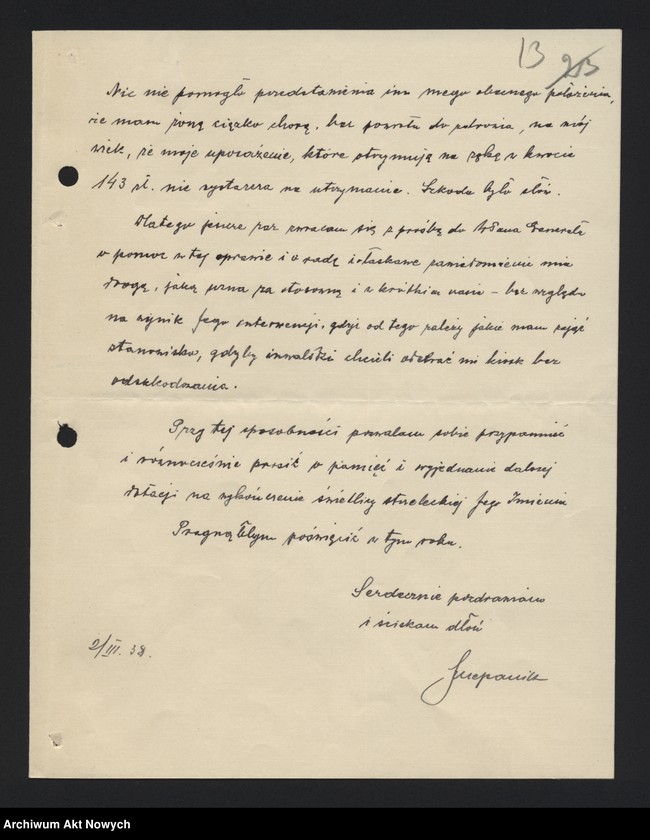 13 213
Nic nie pomogło przedstawienie im mego obecnego położenia,
że mam żonę ciężko chorą, bez powrotu do zdrowia, na mój
wiek, że moje uposażenie, które otrzymuję na rękę w kwocie
143 zł. nie wystarcza na utrzymanie. Szkoda było słów.
Dlatego jeszcze raz zwracam się z prośbą do Pana Generała
o pomoc w tej sprawie i o radę i łaskawe zawiadomienie mnie
drogą, jaką uzna za stosowną i w krótkim czasie – bez względu
na wynik Jego interwencji, gdyż od tego zależy jakie mam zająć
stanowisko, gdyby inwalidzi chcieli odebrać mi kiosk bez
odszkodowania.
Przy tej sposobności pozwalam sobie przypomnieć
i równocześnie prosić o pamięć i wyjednanie dalszej
dotacji na wykończenie świetlicy strzeleckiej Jego Imienia
Pragnąłbym poświęcić w tym roku.
Serdecznie pozdrawiam
i ściskam dłoń
2/III. 38.
Archiwum Akt Nowych